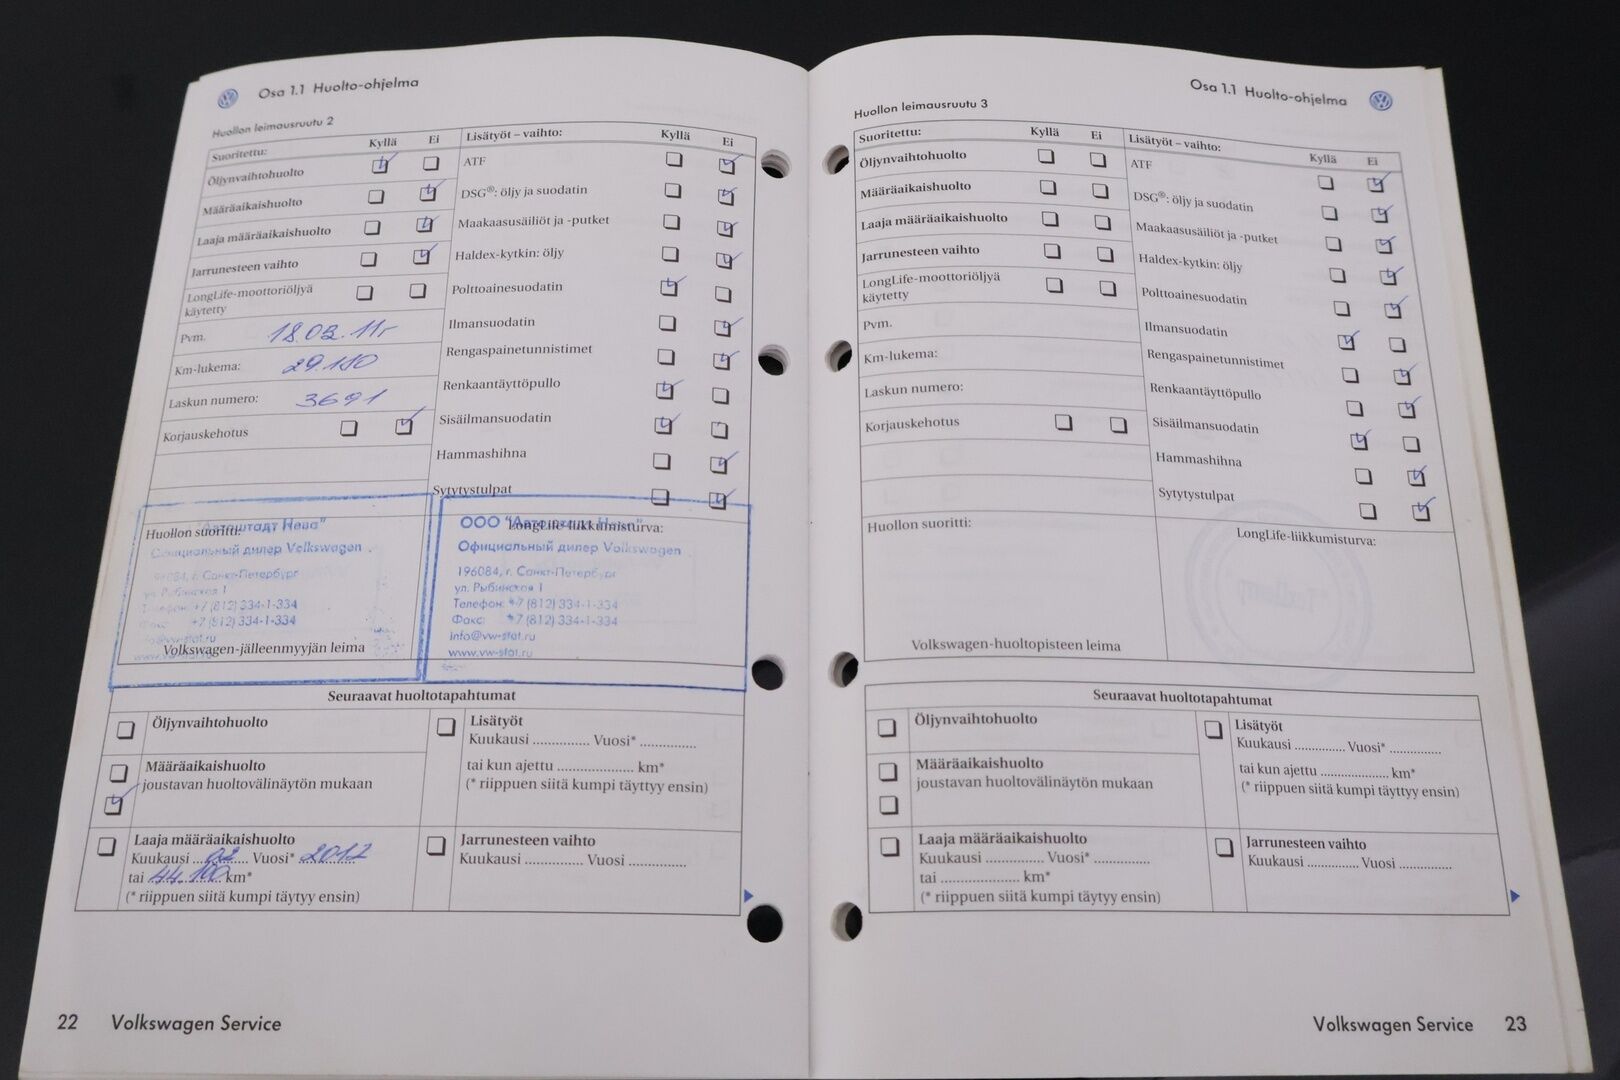 Osa 1.1 Huolto-ohjelma
Huollon leimausruutu 2
Suoritettu: Kyllä Ei
Öljynvaihtohuolto
Määräaikaishuolto
Laaja määräaikaishuolto
Jarrunesteen vaihto
LongLife-moottoriöljyä
käytetty
Pvm. 18.03.11г
Km-lukema: 29.110
Laskun numero: 3691
Korjauskehotus
Lisätyöt – vaihto: Kyllä Ei
ATF
DSG®: öljy ja suodatin
Maakaasusäiliöt ja -putket
Haldex-kytkin: öljy
Polttoainesuodatin
Ilmansuodatin
Rengaspainetunnistimet
Renkaantäyttöpullo
Sisäilmansuodatin
Hammashihna
Sytytystulpat
Huollon suoritti:
"Автоштадт Нева"
Официальный дилер Volkswagen
196084, г. Санкт-Петербург
ул. Рыбинская 1
Телефон: +7 (812) 334-1-334
Факс: +7 (812) 334-1-334
info@vw-stat.ru
www.vw-stat.ru
Volkswagen-jälleenmyyjän leima
LongLife-liikkumisturva:
ООО "Автоштадт Нева"
Официальный дилер Volkswagen
196084, г. Санкт-Петербург
ул. Рыбинская 1
Телефон: +7 (812) 334-1-334
Факс: +7 (812) 334-1-334
info@vw-stat.ru
www.vw-stat.ru
Seuraavat huoltotapahtumat
Öljynvaihtohuolto
Määräaikaishuolto
joustavan huoltovälinäytön mukaan
Laaja määräaikaishuolto
Kuukausi 02 Vuosi* 2012
tai 44.100 km*
(* riippuen siitä kumpi täytyy ensin)
Lisätyöt
Kuukausi .............. Vuosi* ..............
tai kun ajettu ................... km*
(* riippuen siitä kumpi täyttyy ensin)
Jarrunesteen vaihto
Kuukausi .............. Vuosi ..............
22 Volkswagen Service
Osa 1.1 Huolto-ohjelma
Huollon leimausruutu 3
Suoritettu: Kyllä Ei
Öljynvaihtohuolto
Määräaikaishuolto
Laaja määräaikaishuolto
Jarrunesteen vaihto
LongLife-moottoriöljyä
käytetty
Pvm.
Km-lukema:
Laskun numero:
Korjauskehotus
Lisätyöt – vaihto: Kyllä Ei
ATF
DSG®: öljy ja suodatin
Maakaasusäiliöt ja -putket
Haldex-kytkin: öljy
Polttoainesuodatin
Ilmansuodatin
Rengaspainetunnistimet
Renkaantäyttöpullo
Sisäilmansuodatin
Hammashihna
Sytytystulpat
Huollon suoritti:
Volkswagen-huoltopisteen leima
LongLife-liikkumisturva:
Seuraavat huoltotapahtumat
Öljynvaihtohuolto
Määräaikaishuolto
joustavan huoltovälinäytön mukaan
Laaja määräaikaishuolto
Kuukausi .............. Vuosi* ..............
tai .................... km*
(* riippuen siitä kumpi täytyy ensin)
Lisätyöt
Kuukausi ............. Vuosi* .............
tai kun ajettu .................. km*
(* riippuen siitä kumpi täyttyy ensin)
Jarrunesteen vaihto
Kuukausi ............. Vuosi .............
Volkswagen Service 23